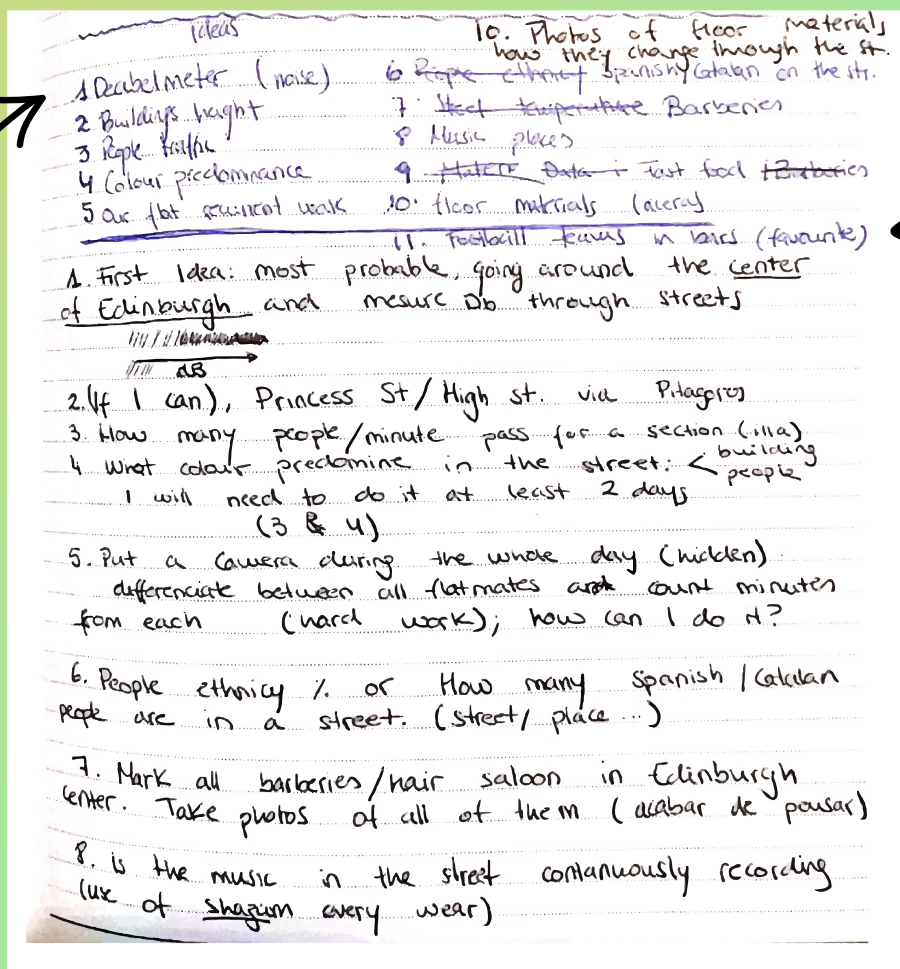 Ideas
10. Photos of floor materials,
how they change through the st.
1 Decibelmeter (noise)
2 Buildings height
3 People traffic
4 Colour predominance
5 Our flat
6 People ethnicy Spanish/Catalan on the str.
7. Steet temperature Barberies
8 Music places
9 Data Fast food Barberies
10. floor matrials (acera)
11. Footbaill teams in bars (favourite)
1. First Idea: most probable, going around the center
of Edinburgh and mesure Db through streets
dB
2. (If I can), Princess St/High st. via Pitagores
3. How many people/minute pass for a section (illa)
4 What colour predomine in the street: < building
people
I will need to do it at least 2 days
(3 & 4)
5. Put a camera during the whole day (hidden)
differenciate between all flatmates and count minutes
from each (hard work); how can I do it?
6. People ethnicy % or How many Spanish/Catalan
people are in a street. (street/place ...)
7. Mark all barberies/hair saloon in Edinburgh
center. Take photos of all of them (acabar de pensar)
8. is the music in the street contanuously recording
(use of shazam every wear)